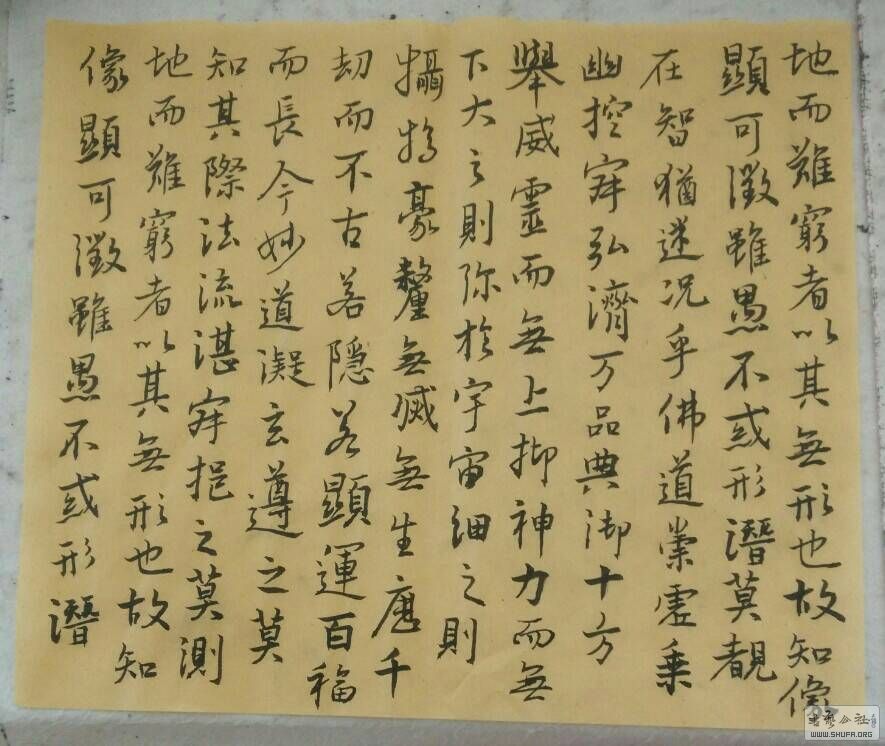 地而難窮者以其無形也故知像
顯可徵雖愚不惑形潛莫覩
在智猶迷況乎佛道崇虛乗
幽控寂弘濟万品典御十方
舉威靈而無上抑神力而無
下大之則弥於宇宙細之則
攝於豪釐無滅無生歷千
劫而不古若隱若顯運百福
而長今妙道凝玄遵之莫
知其際法流湛寂挹之莫測
地而難窮者以其無形也故知
像顯可徵雖愚不惑形潛
WWW.SHUFA.ORG